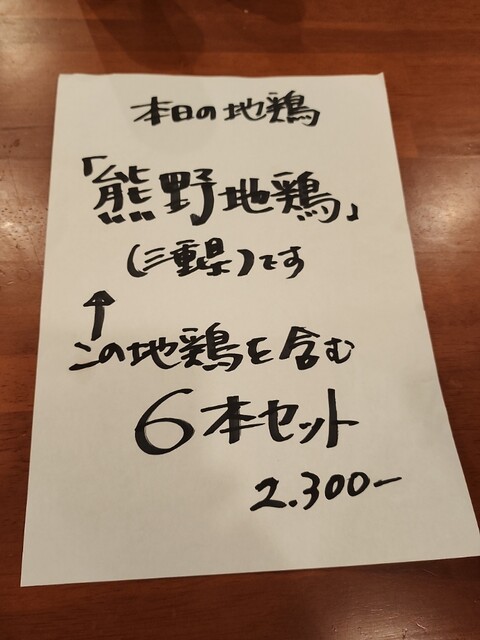 本日の地鶏
「熊野地鶏」
(三重県)です
↑
この地鶏を含む
6本セット
2.300-